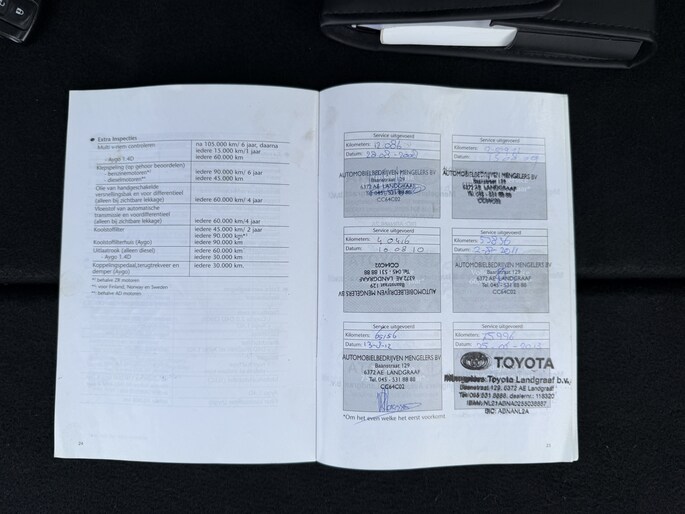 Extra Inspecties
Multi v-riem controleren na 105.000 km/ 6 jaar, daarna
iedere 15.000 km/1 jaar
- Aygo 1.4D iedere 60.000 km
Klepspeling (op gehoor beoordelen)
- benzinemotoren** iedere 90.000 km/ 6 jaar
- dieselmotoren** iedere 45.000 km
Olie van handgeschakelde
versnellingsbak en voor differentieel
(alleen bij zichtbare lekkage) iedere 60.000 km/ 4 jaar
Vloeistof van automatische
transmissie en voordifferentieel
(alleen bij zichtbare lekkage) iedere 60.000 km/4 jaar
Koolstoffilter iedere 45.000 km/ 2 jaar
iedere 90.000 kgs**
Koolstoffilterhuis (Aygo) iedere 90.000 km
Uitlaatrook (alleen diesel) iedere 60.000 km.
- Aygo 1.4D iedere 30.000 km
Koppelingspedaal,terugtrekveer en iedere 30.000 km.
demper (Aygo)
* behalve ZR motoren
** voor Finland, Norway en Sweden
** behalve AD motoren
24
Service uitgevoerd
Kilometers:
Datum:
AUTOMOBIELBEDRIJVEN MENGELERS BV
Baanstraat 129
6372 AE LANDGRAAF
CC64C02
Service uitgevoerd
Kilometers:
Datum:
AUTOMOBIELBEDRIJVEN MENGELERS BV
Baanstraat 129
6372 AE LANDGRAAF
Service uitgevoerd
Kilometers: 40416
Datum: 10 08 10
AUTOMOBIELBEDRIJVEN MENGELERS BV
Baanstraat 129
6372 AE LANDGRAAF
Tel. 045 - 531 88 88
CC64C02
Service uitgevoerd
Kilometers: 52836
Datum:
AUTOMOBIELBEDRIJVEN MENGELERS BV
Baanstraat 129
6372 AE LANDGRAAF
Tel. 045 - 531 88 88
CC64C02
Service uitgevoerd
Kilometers:
Datum:
AUTOMOBIELBEDRIJVEN MENGELERS BV
Baanstraat 129
6372 AE LANDGRAAF
Tel. 045 - 531 88 88
CC64C02
Service uitgevoerd
Kilometers:
Datum:
TOYOTA
Mengelers Toyota Landgraaf b.v.
Baanstraat 129, 6372 AE Landgraaf
*Om het even welke het eerst voorkomt.
25